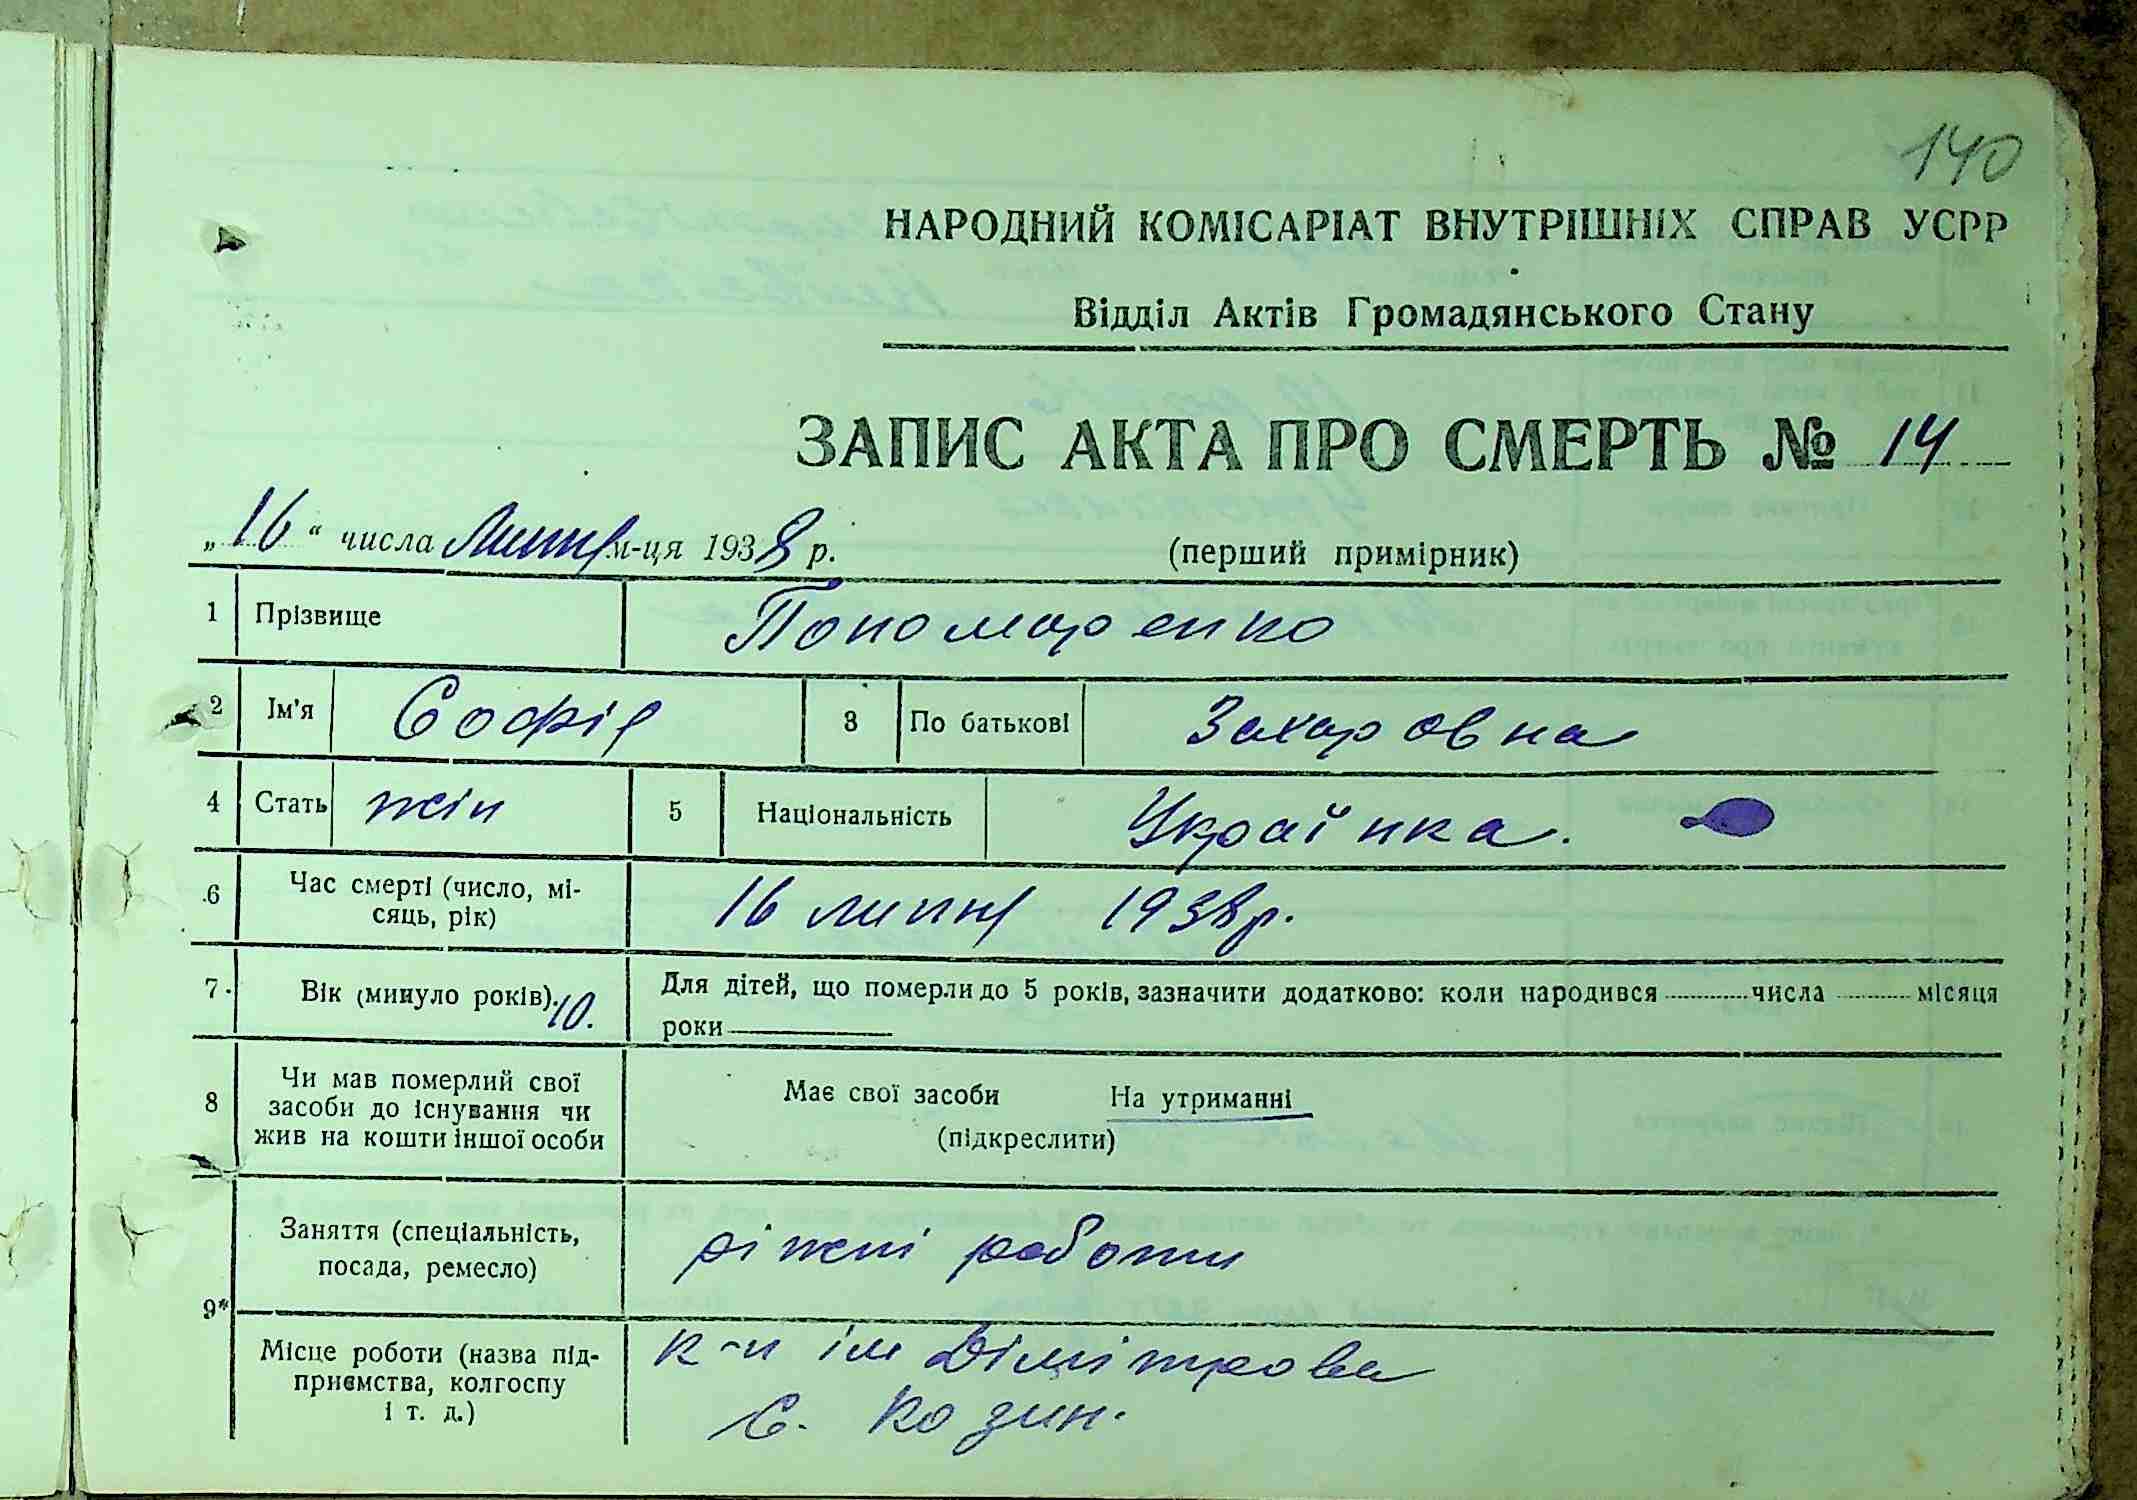 140
НАРОДНИЙ КОМІСАРІАТ ВНУТРІШНІХ СПРАВ УСРР
Відділ Актів Громадянського Стану
ЗАПИС АКТА ПРО СМЕРТЬ № 14
„16“ числа Липня м-ця 1938 р. (перший примірник)
1 Прізвище Пономаренко
2 Ім'я Софія 3 По батькові Захаровна
4 Стать жін 5 Національність Українка.
6 Час смерті (число, мі-
сяць, рік) 16 липня 1938р.
7. Вік (минуло років) 10. Для дітей, що померли до 5 років, зазначити додатково: коли народився ........ числа ........ місяця
роки
8 Чи мав померлий свої
засоби до існування чи
жив на кошти іншої особи
Має свої засоби На утриманні
(підкреслити)
9* Заняття (спеціальність,
посада, ремесло) ріжні роботи
Місце роботи (назва під-
приємства, колгоспу
і т. д.)
к-п ім Дімітрова
с. Козин.